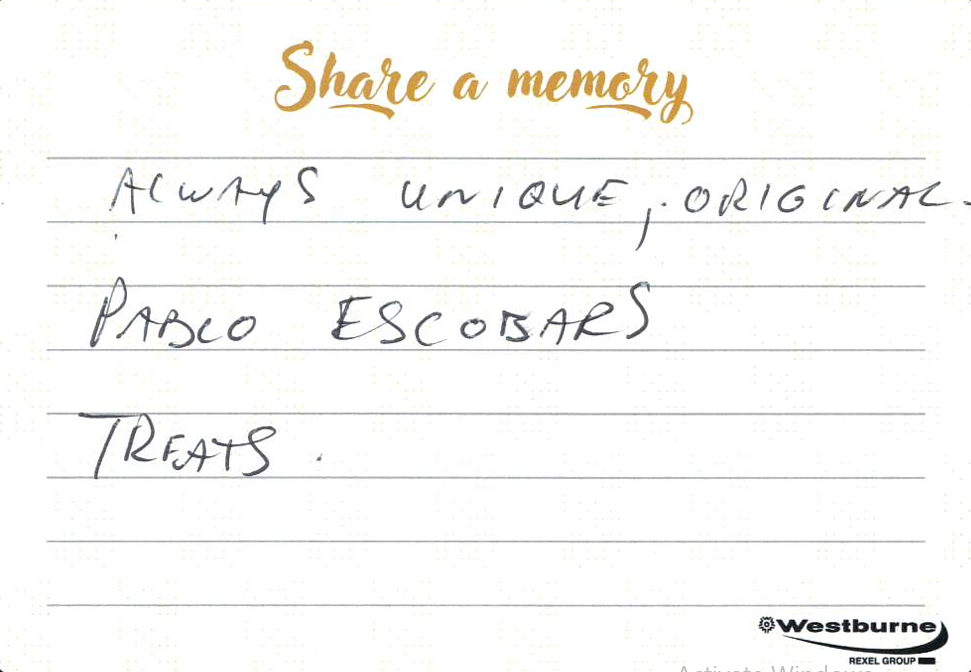 Share a memory
ALWAYS UNIQUE, ORIGINAL.
PABLO ESCOBARS
TREATS.
Westburne
REXEL GROUP
Activate Windows